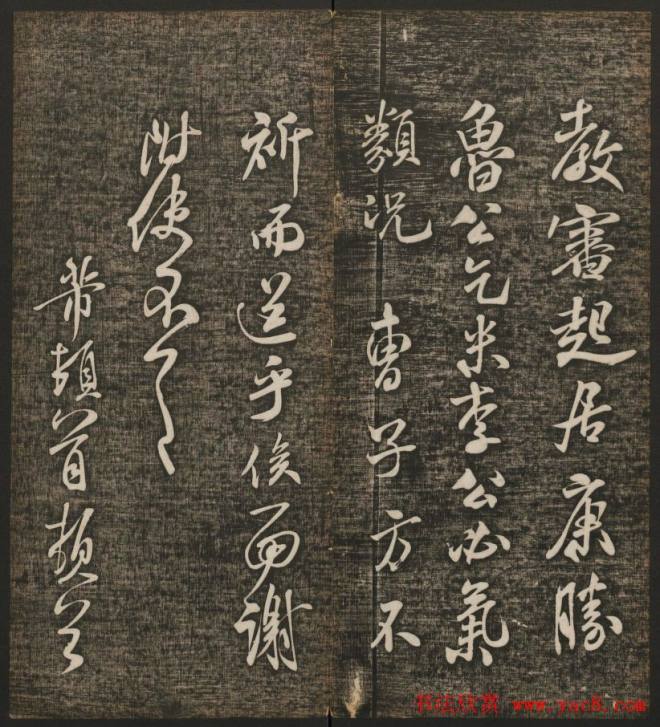 教審起居康勝
魯公乞米李公必氣
類況 曹子方不
祈而送乎俟面謝
附使不
芾頓首頓首
书法欣赏 www.yac8.com